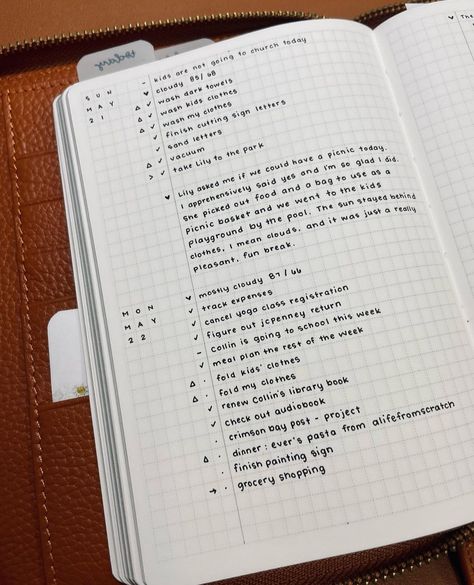 today
SUN
MAY
21
– kids are not going to church today
♥ cloudy 85/68
△ ✓ wash dark towels
✓ wash kids clothes
△ ✓ wash my clothes
△ ✓ finish cutting sign letters
✓ sand letters
△ ✓ vacuum
> ✓ take Lily to the park
♥ Lily asked me if we could have a picnic today.
I apprehensively said yes and I'm so glad I did.
She picked out food and a bag to use as a
picnic basket and we went to the kids
playground by the pool. The sun stayed behind
clothes, I mean clouds, and it was just a really
pleasant, fun break.
MON
MAY
22
♥ mostly cloudy 87/66
✓ track expenses
✓ cancel yoga class registration
✓ figure out jcpenney return
– Collin is going to school this week
✓ meal plan the rest of the week
△ · fold kids' clothes
△ · fold my clothes
✓ renew Collin's library book
✓ check out audiobook
· crimson bay post - project
△ · dinner: ever's pasta from alifefromscratch
· finish painting sign
→ · grocery shopping